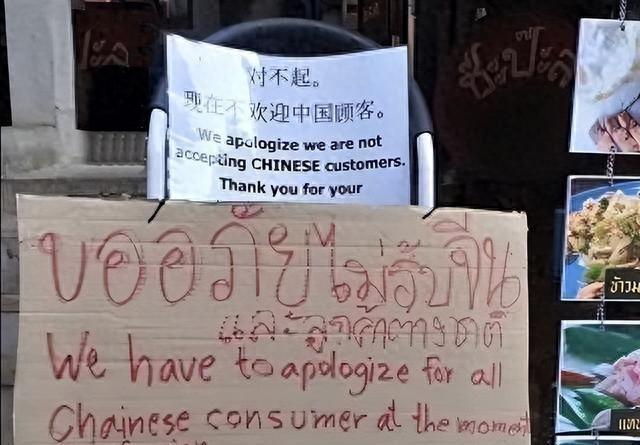 对不起。
现在不欢迎中国顾客。
We apologize we are not
accepting CHINESE customers.
Thank you for your
ขออภัยไม่รับจีน
และลูกค้าต่างชาติ
We have to apologize for all
Chainese consumer at the moment
ข้าวม